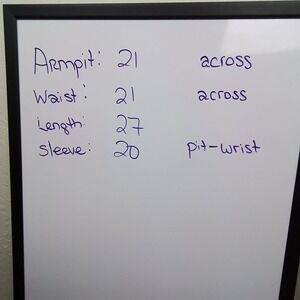 Armpit: 21 across
Waist: 21 across
Length: 27
Sleeve: 20 pit-wrist